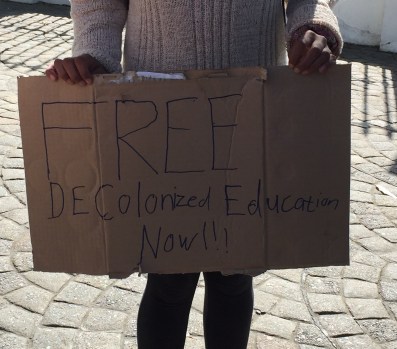 FREE
DEColonized Education
Now!!!